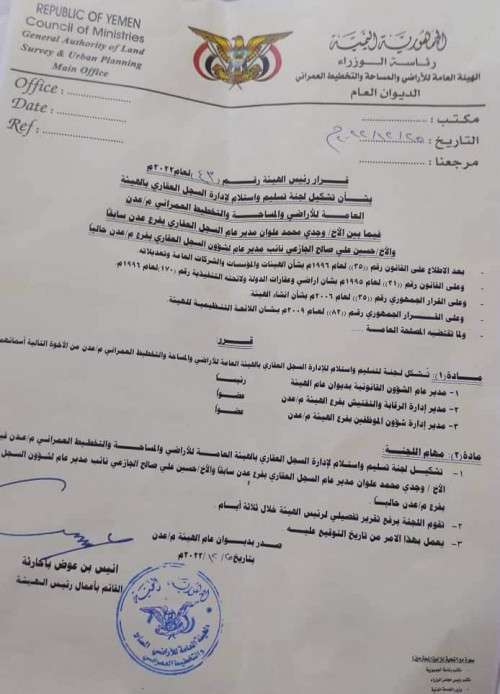 REPUBLIC OF YEMEN
Council of Ministries
General Authority of Land
Survey & Urban Planning
Main Office
الجمهورية اليمنية
رئاسة الوزراء
الهيئة العامة للأراضي والمساحة والتخطيط العمراني
الديوان العام
Office :
Date :
Ref :
مكتب :
التاريخ :
مرجعنا :
قرار رئيس الهيئة رقم (٤٣) لعام ٢٠٢٢م
بشأن تشكيل لجنة تسليم واستلام لإدارة السجل العقاري بالهيئة
العامة للأراضي والمساحة والتخطيط العمراني م/عدن
فيما بين الأخ/ وجدي محمد علوان مدير عام السجل العقاري بفرع عدن سابقاً
والأخ/حسين علي صالح الجازعي نائب مدير عام لشؤون السجل العقاري بفرع م/عدن حالياً
- بعد الاطلاع على القانون رقم ((٣٥)) لعام ١٩٩٦م بشأن الهيئات والمؤسسات والشركات العامة وتعديلاته.
- وعلى القانون رقم ((٢١)) لعام ١٩٩٥م بشأن اراضي وعقارات الدولة ولائحته التنفيذية رقم ((١٧٠)) لعام ١٩٩٦م.
- وعلى القرار الجمهوري رقم ((٣٥)) لعام ٢٠٠٦م بشأن انشاء الهيئة.
- وعلى القرار الجمهوري رقم ((٨٢)) لعام ٢٠٠٩م بشأن اللائحة التنظيمية للهيئة.
- ولما تقتضيه المصلحة العامة....
قرر
مادة(١): تُشكل لجنة للتسليم واستلام لإدارة السجل العقاري بالهيئة العامة للأراضي والمساحة والتخطيط العمراني م/عدن من الأخوة التالية أسمائهم
١- مدير عام الشؤون القانونية بديوان عام الهيئة رئيساً
٢- مدير إدارة الرقابة والتفتيش بفرع الهيئة م/عدن عضواً
٣- مدير إدارة شؤون الموظفين بفرع الهيئة م/عدن عضواً
مادة(٢): مهام اللجنة:
١- تشكيل لجنة تسليم واستلام لإدارة السجل العقاري بالهيئة العامة للأراضي والمساحة والتخطيط العمراني م/عدن
الأخ / وجدي محمد علوان مدير عام السجل العقاري بفرع عدن سابقاً والأخ/حسين علي صالح الجازعي نائب مدير عام لشؤون السجل
بفرع م/عدن حالياً.
٢- تقوم اللجنة برفع تقرير تفصيلي لرئيس الهيئة خلال ثلاثة أيام.
٣- يعمل بهذا الامر من تاريخ التوقيع عليه
صدر بديوان عام الهيئة م/عدن
انيس بن عوض باحارثة
القائم بأعمال رئيس الهيئة
الجمهورية اليمنية
الهيئة العامة للأراضي
والتخطيط العمراني